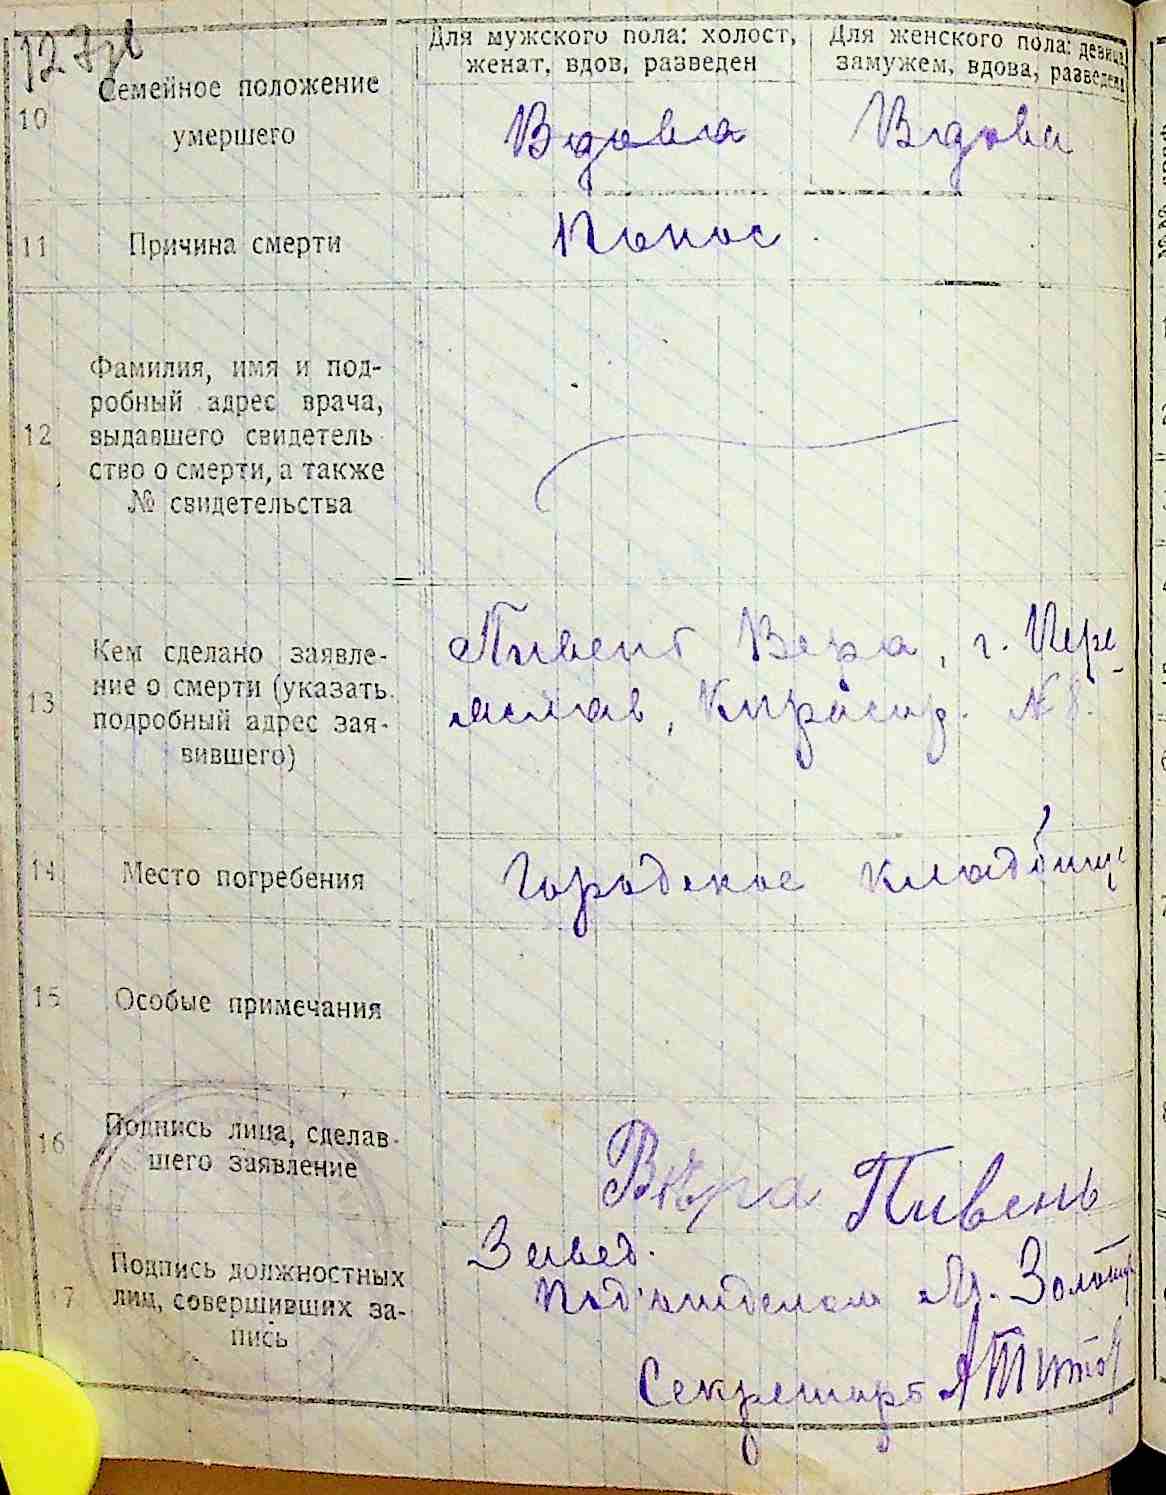 Для мужского пола: холост,
женат, вдов, разведен
Для женского пола: девица,
замужем, вдова, разведена
10
Семейное положение
умершего
Вдова
Вдова
11
Причина смерти
Понос
12
Фамилия, имя и под-
робный адрес врача,
выдавшего свидетель-
ство о смерти, а также
№ свидетельства
13
Кем сделано заявле-
ние о смерти (указать
подробный адрес зая-
вившего)
Пивень Вера, г. Пере-
яслав, №8.
14
Место погребения
Городское кладбище
15
Особые примечания
16
Подпись лица, сделав-
шего заявление
Вѣра Пивень
17
Подпись должностных
лиц, совершивших за-
пись
Завед.
Под'отделом
Секретарь АТитов